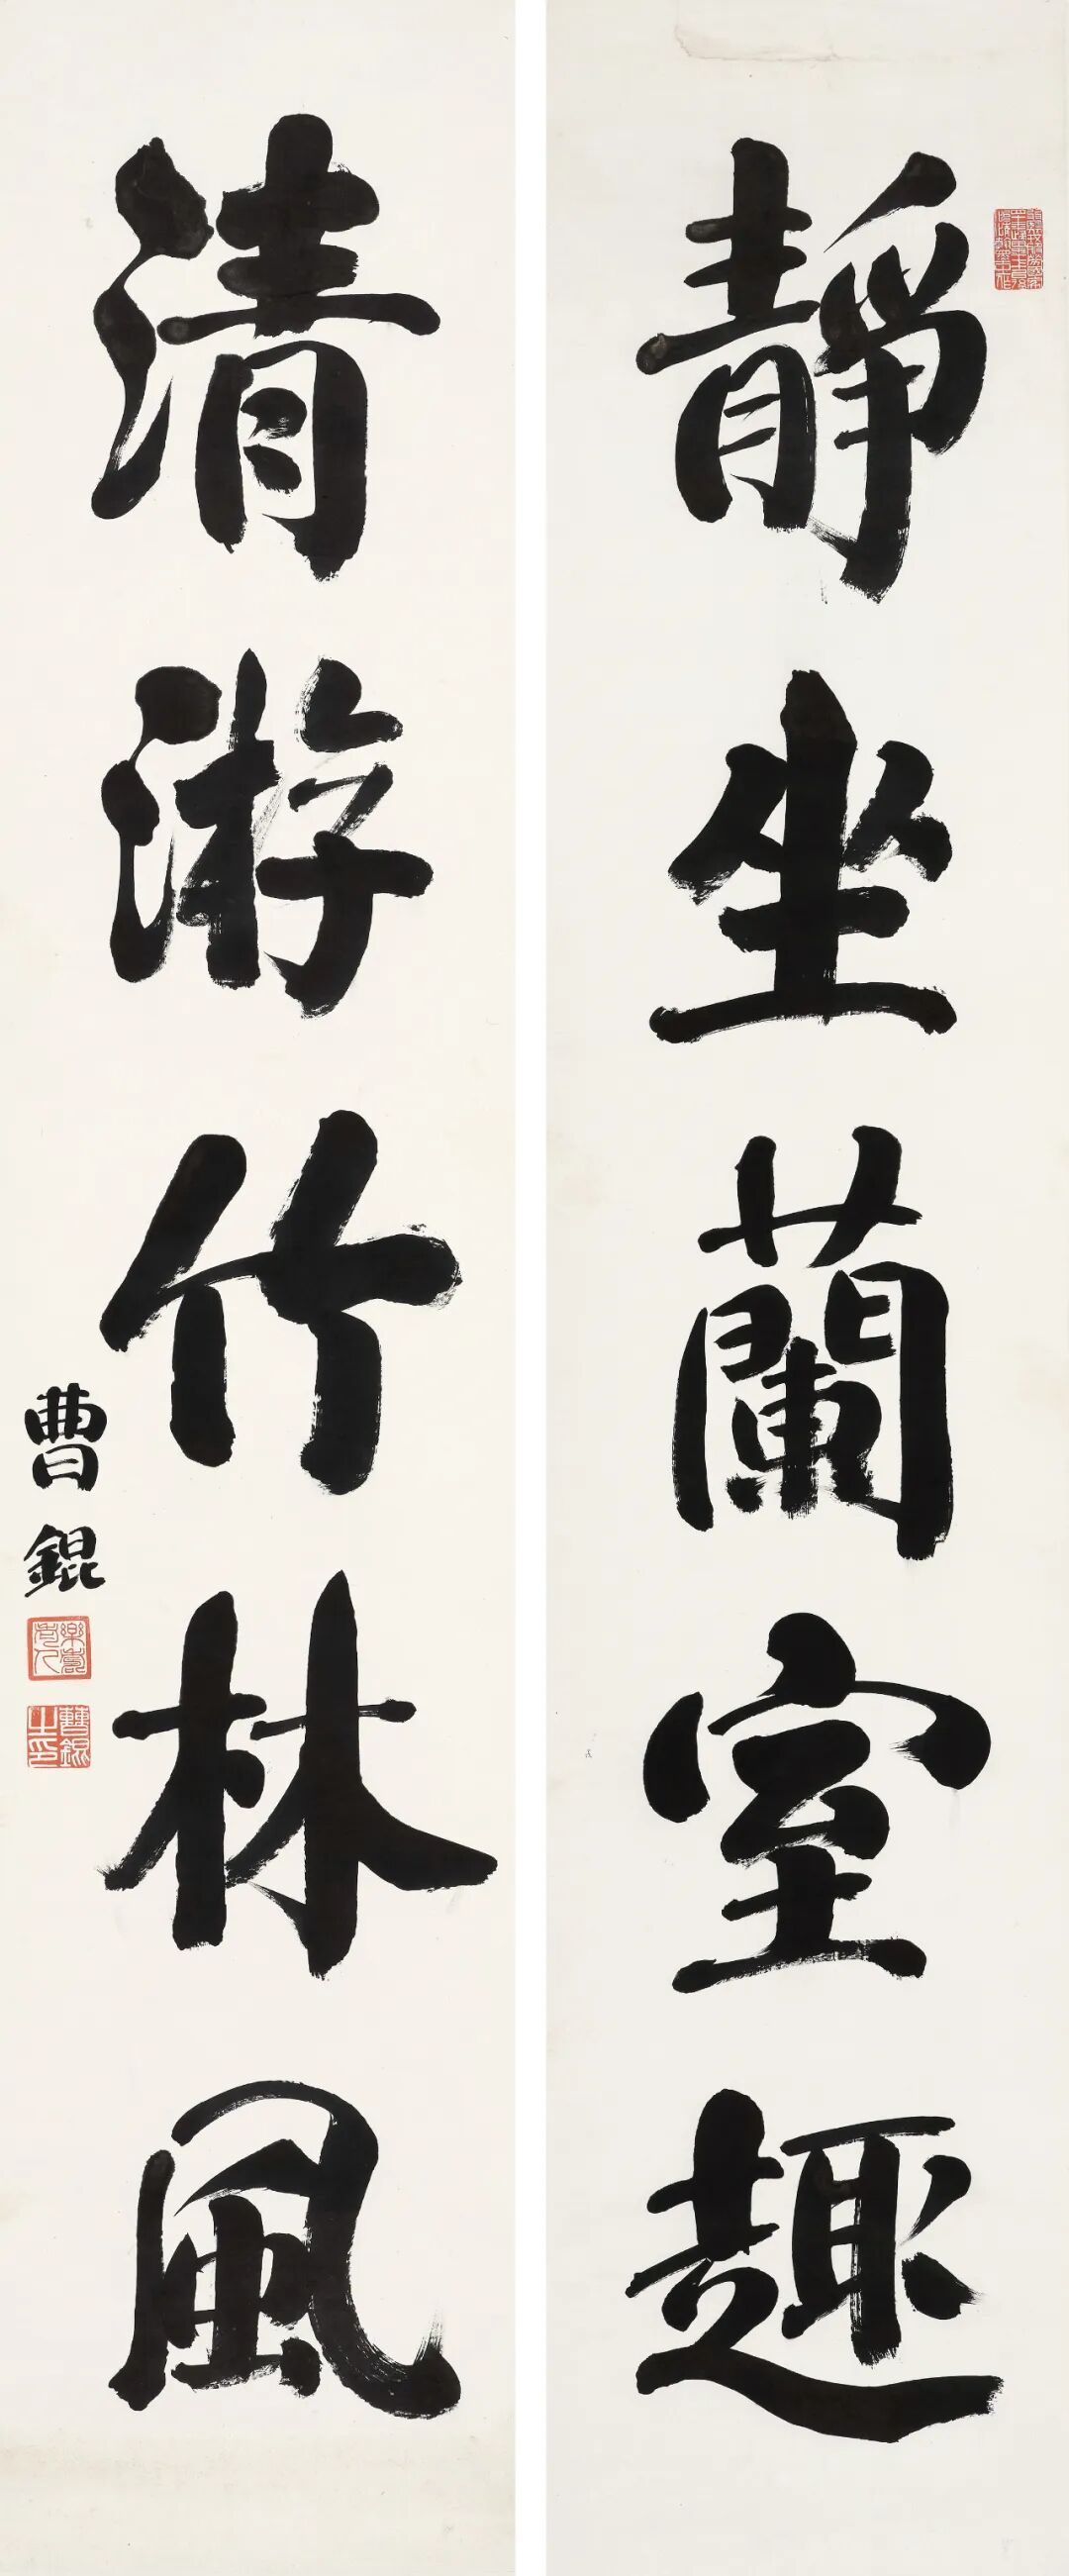 靜坐蘭室趣
清游竹林風
曹錕
樂壽老人
曹錕之印